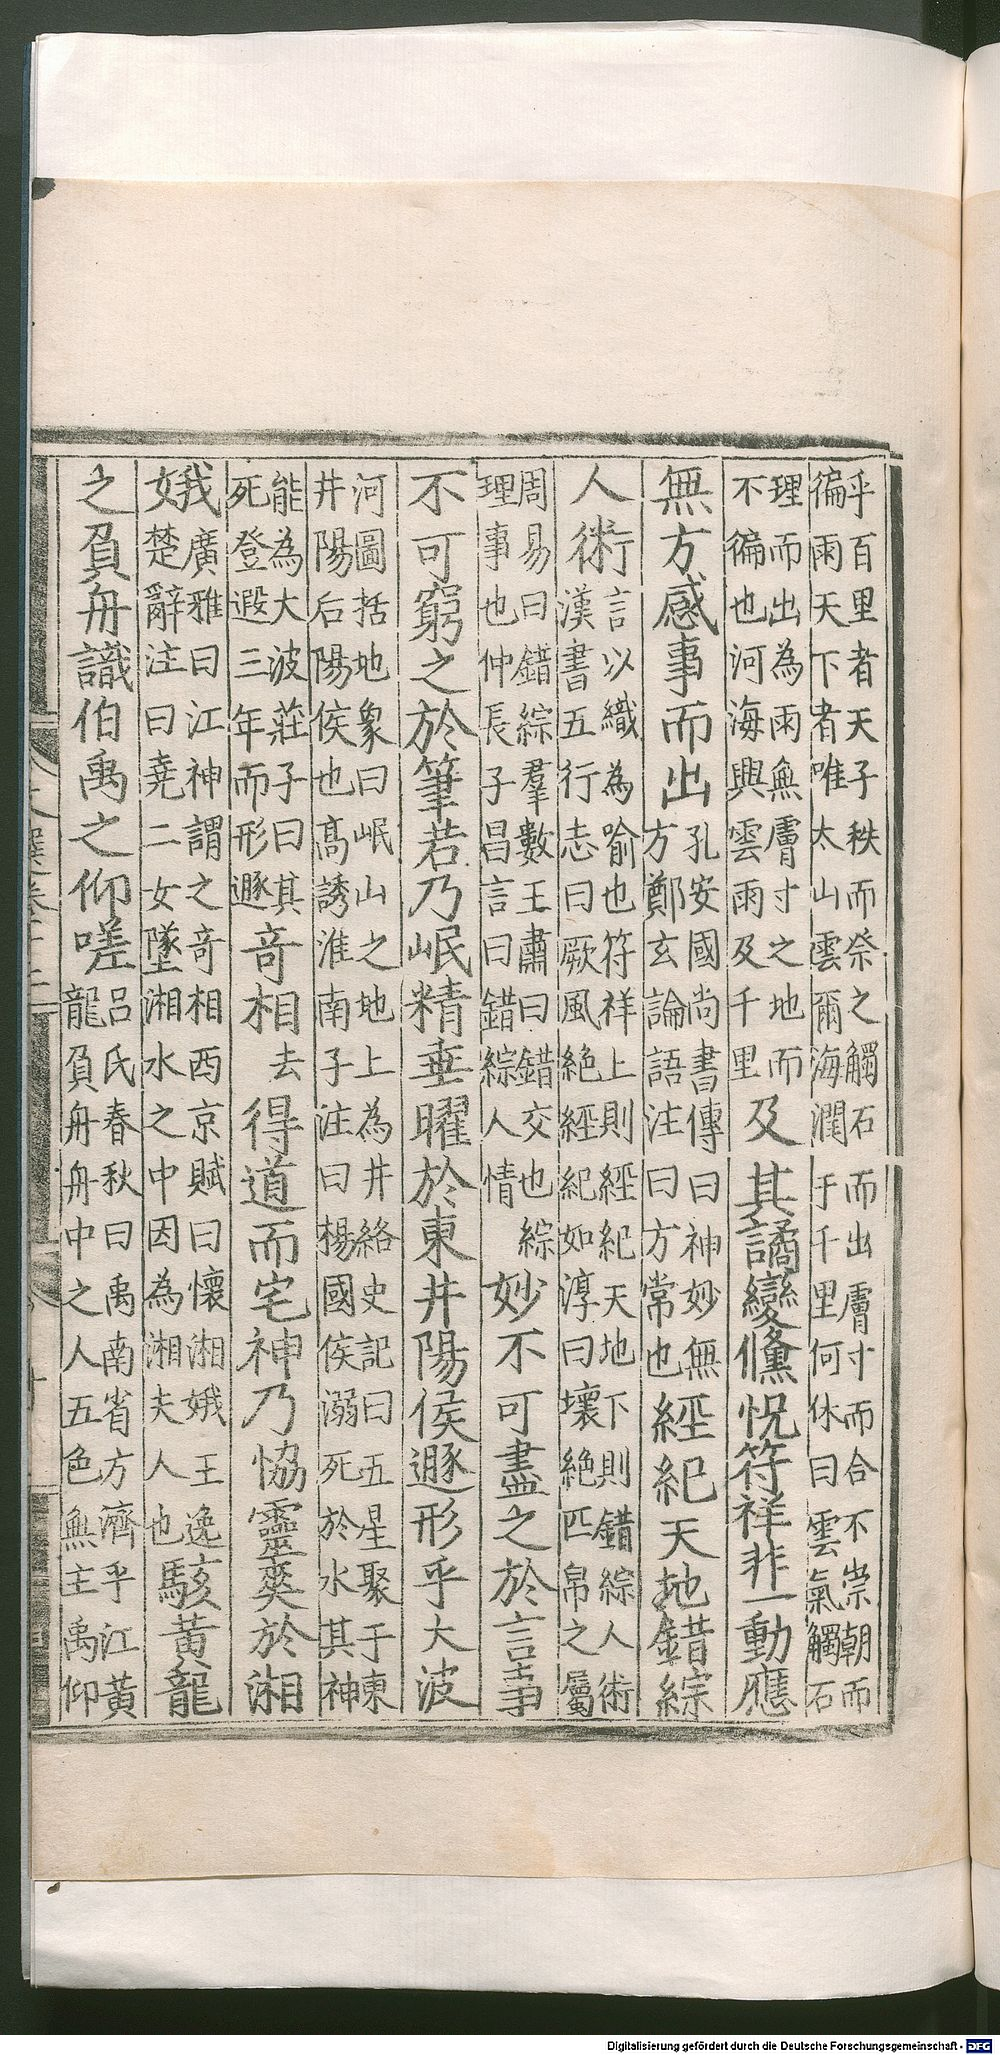 乎百里者天子秩而祭之觸石而出膚寸而合不崇朝而
徧雨天下者唯太山雲爾海潤于千里何休曰雲氣觸石
理而出為雨無膚寸之地而
不徧也河海興雲雨及千里
及其譎變儵怳符祥非一動應
無方感事而出
孔安國尚書傳曰神妙無
方鄭玄論語注曰方常也
經紀天地錯綜
人術
言以織為喻也符祥上則經紀天地下則錯綜人術
漢書五行志曰厥風絕經紀如淳曰壞絕匹帛之屬
周易曰錯綜羣數王肅曰錯交也綜
理事也仲長子昌言曰錯綜人情
妙不可盡之於言事
不可窮之於筆若乃岷精垂曜於東井陽侯遯形乎大波
河圖括地象曰岷山之地上為井絡史記曰五星聚于東
井陽后陽侯也高誘淮南子注曰楊國侯溺死於水其神
能為大波莊子曰其
死登遐三年而形遯
奇相去得道而宅神乃協靈爽於湘
娥
廣雅曰江神謂之奇相西京賦曰懷湘娥王逸
楚辭注曰堯二女墜湘水之中因為湘夫人也
駭黃龍
之負舟識伯禹之仰嗟
呂氏春秋曰禹南省方濟乎江黃
龍負舟舟中之人五色無主禹仰
Digitalisierung gefördert durch die Deutsche Forschungsgemeinschaft - DFG